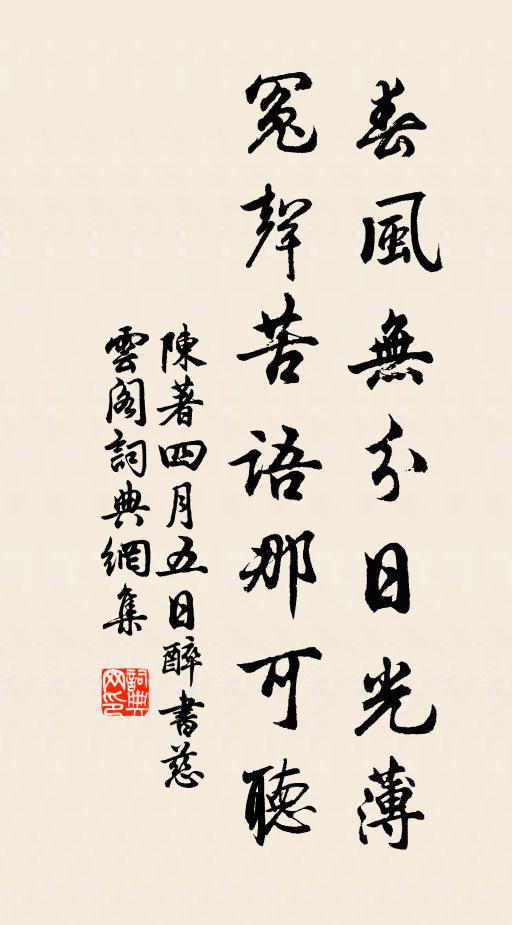 春風無分日光薄
冤聲苦語那可聽
陳著四月五日醉書慈
雲閣詞典網集
詞典
网印